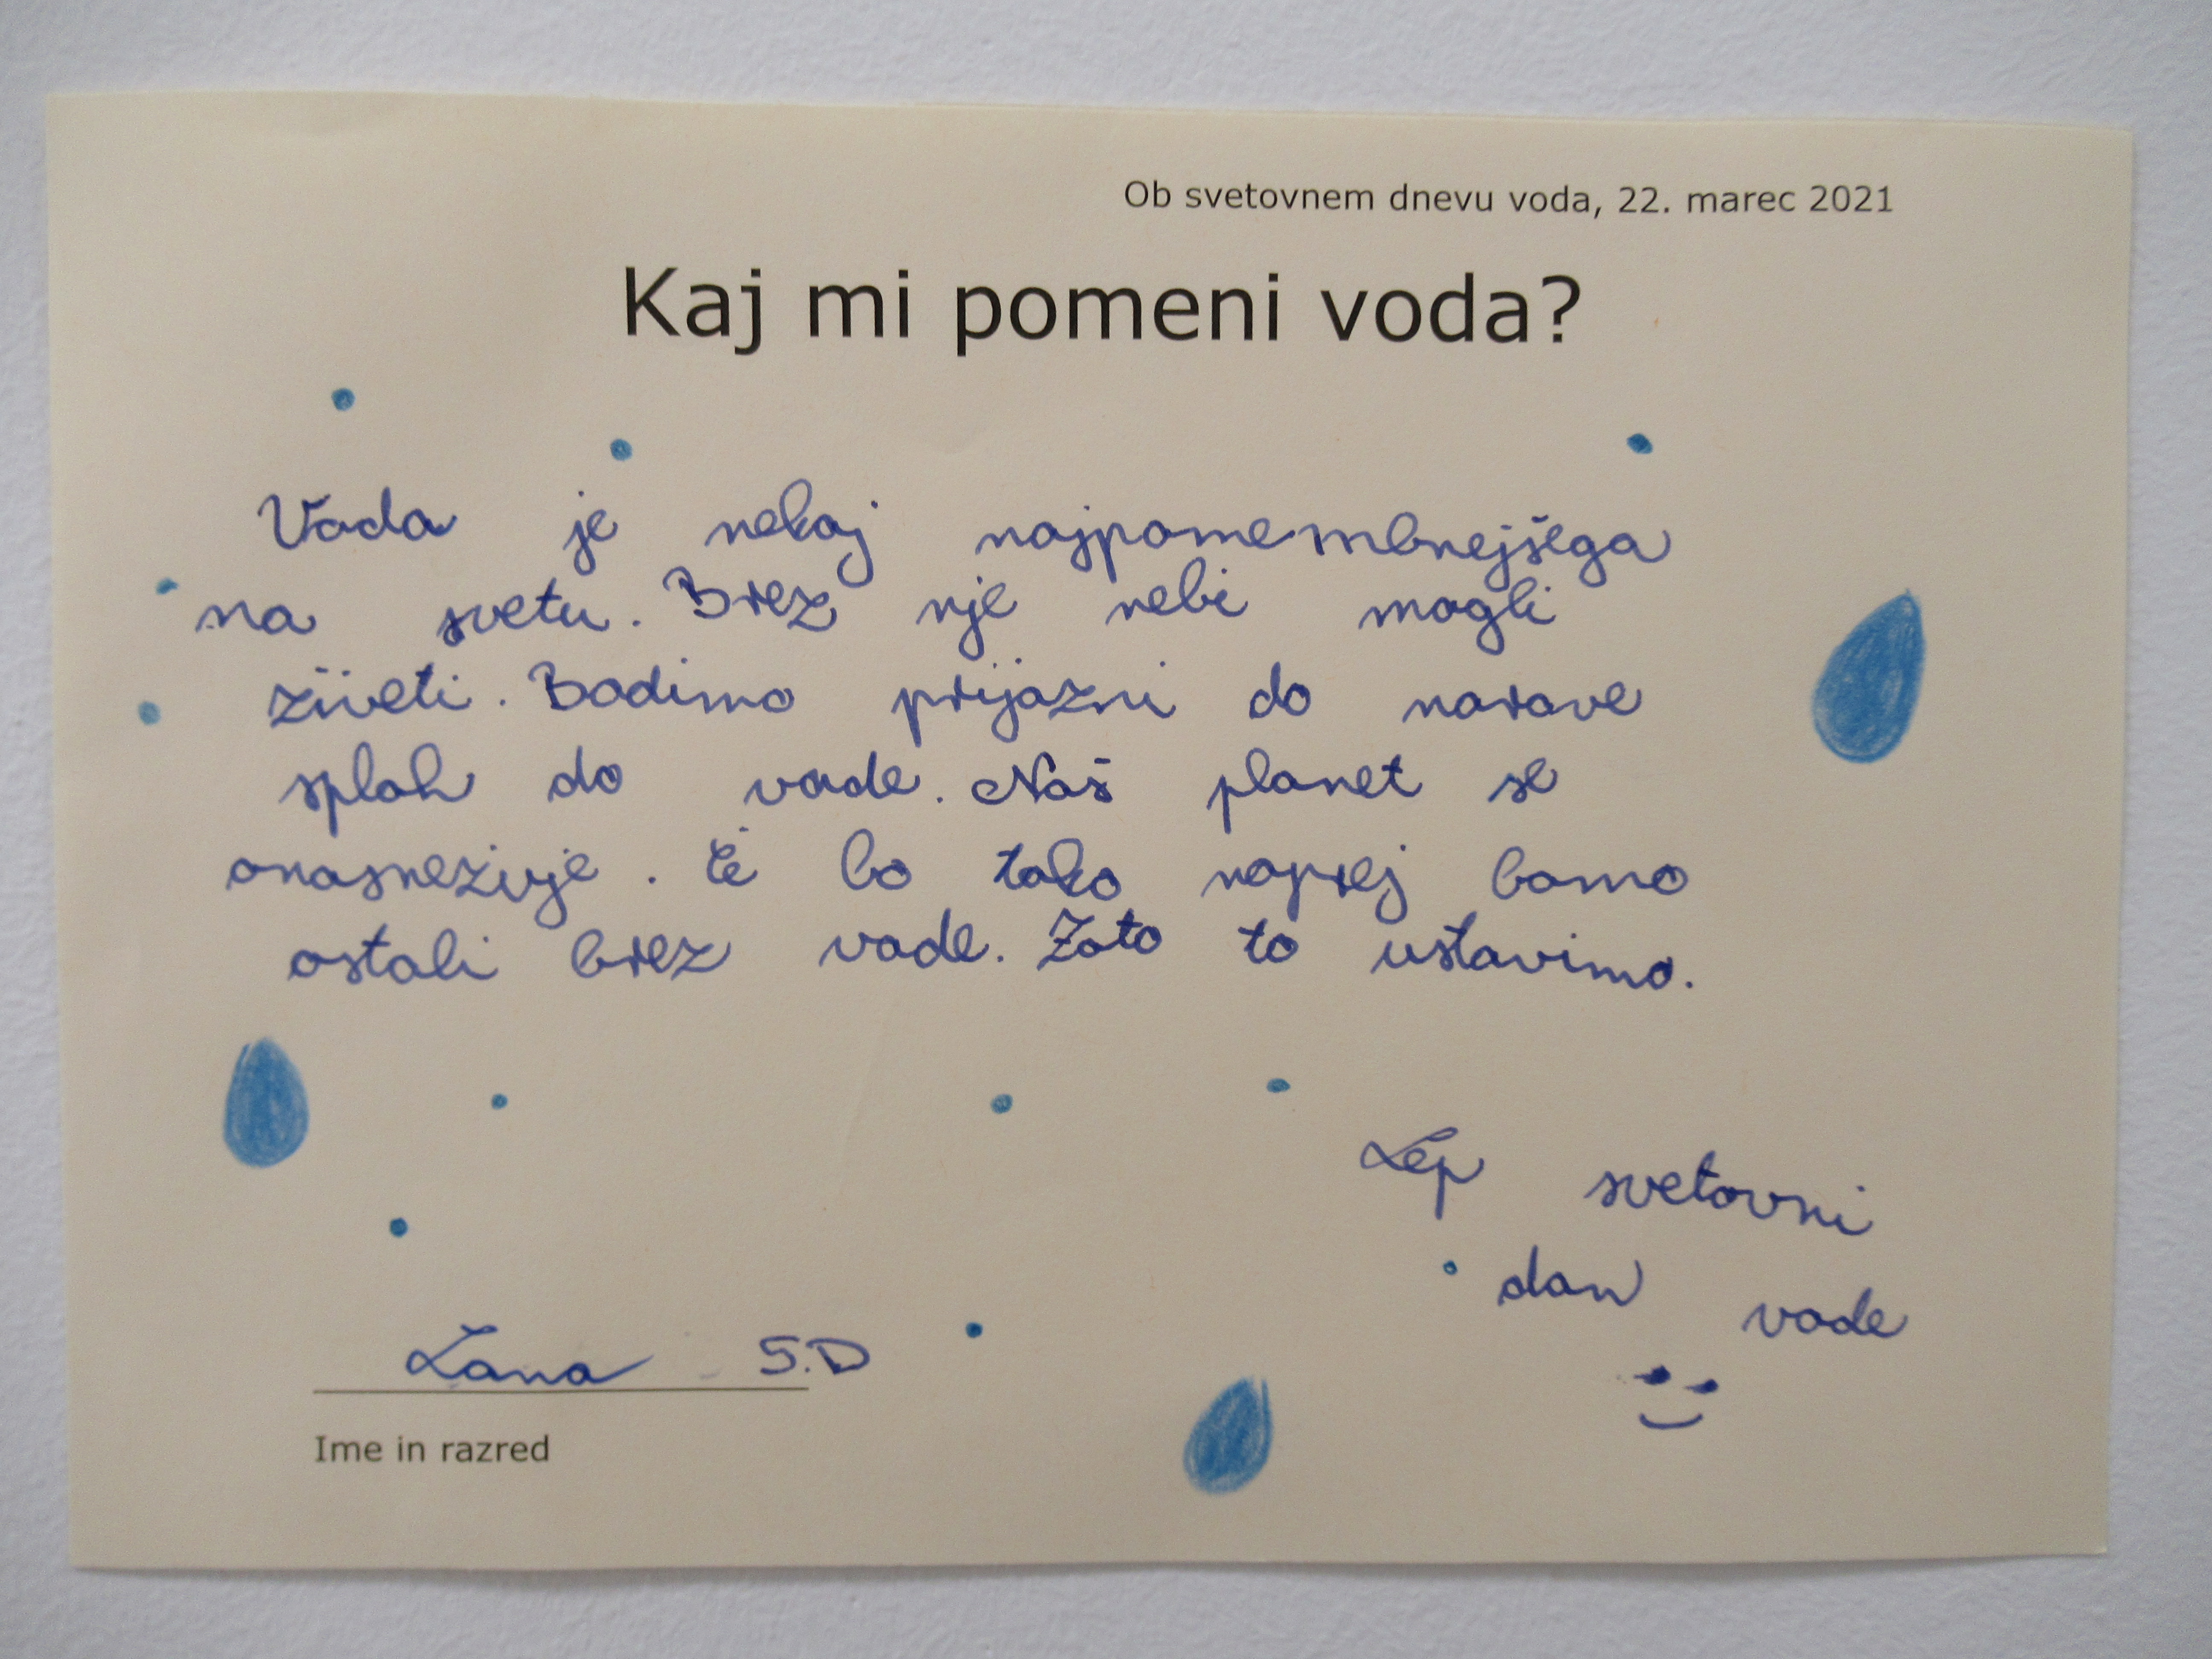 Ob svetovnem dnevu voda, 22. marec 2021
Kaj mi pomeni voda?
Voda je nekaj najpomembnejšega
na svetu. Brez nje nebi mogli
živeti. Bodimo prijazni do narave
sploh do vode. Naš planet se
onasnežuje. Če bo tako naprej bomo
ostali brez vode. Zato to ustavimo.
Lep svetovni
dan vode
Lana 5.D
Ime in razred